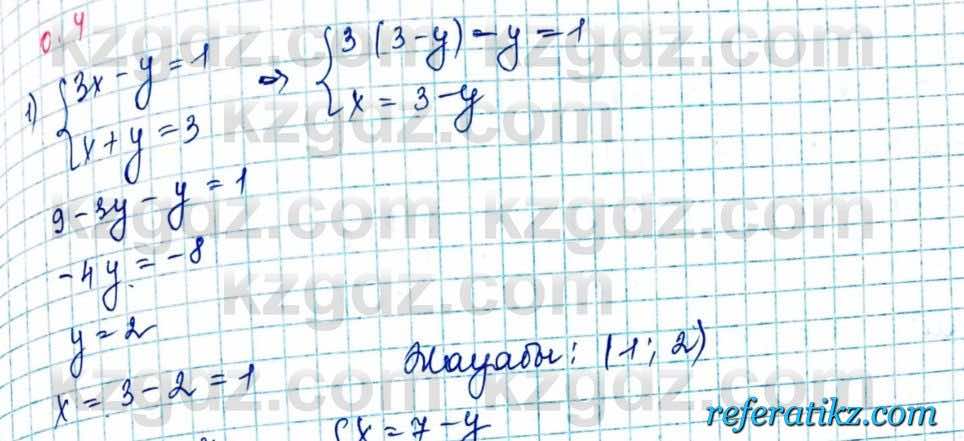 0.4
1) {3x - y = 1 => {3(3-y) - y = 1
{x + y = 3 {x = 3 - y
9 - 3y - y = 1
-4y = -8
y = 2
x = 3 - 2 = 1
Жауабы: (1; 2)
{x = 7 - y
kzgdz.com kzgdz.com
kzgdz.com
kzgdz.com kzgdz.com
kzgdz.com
kzgdz.com kzgdz.com
referatikz.com